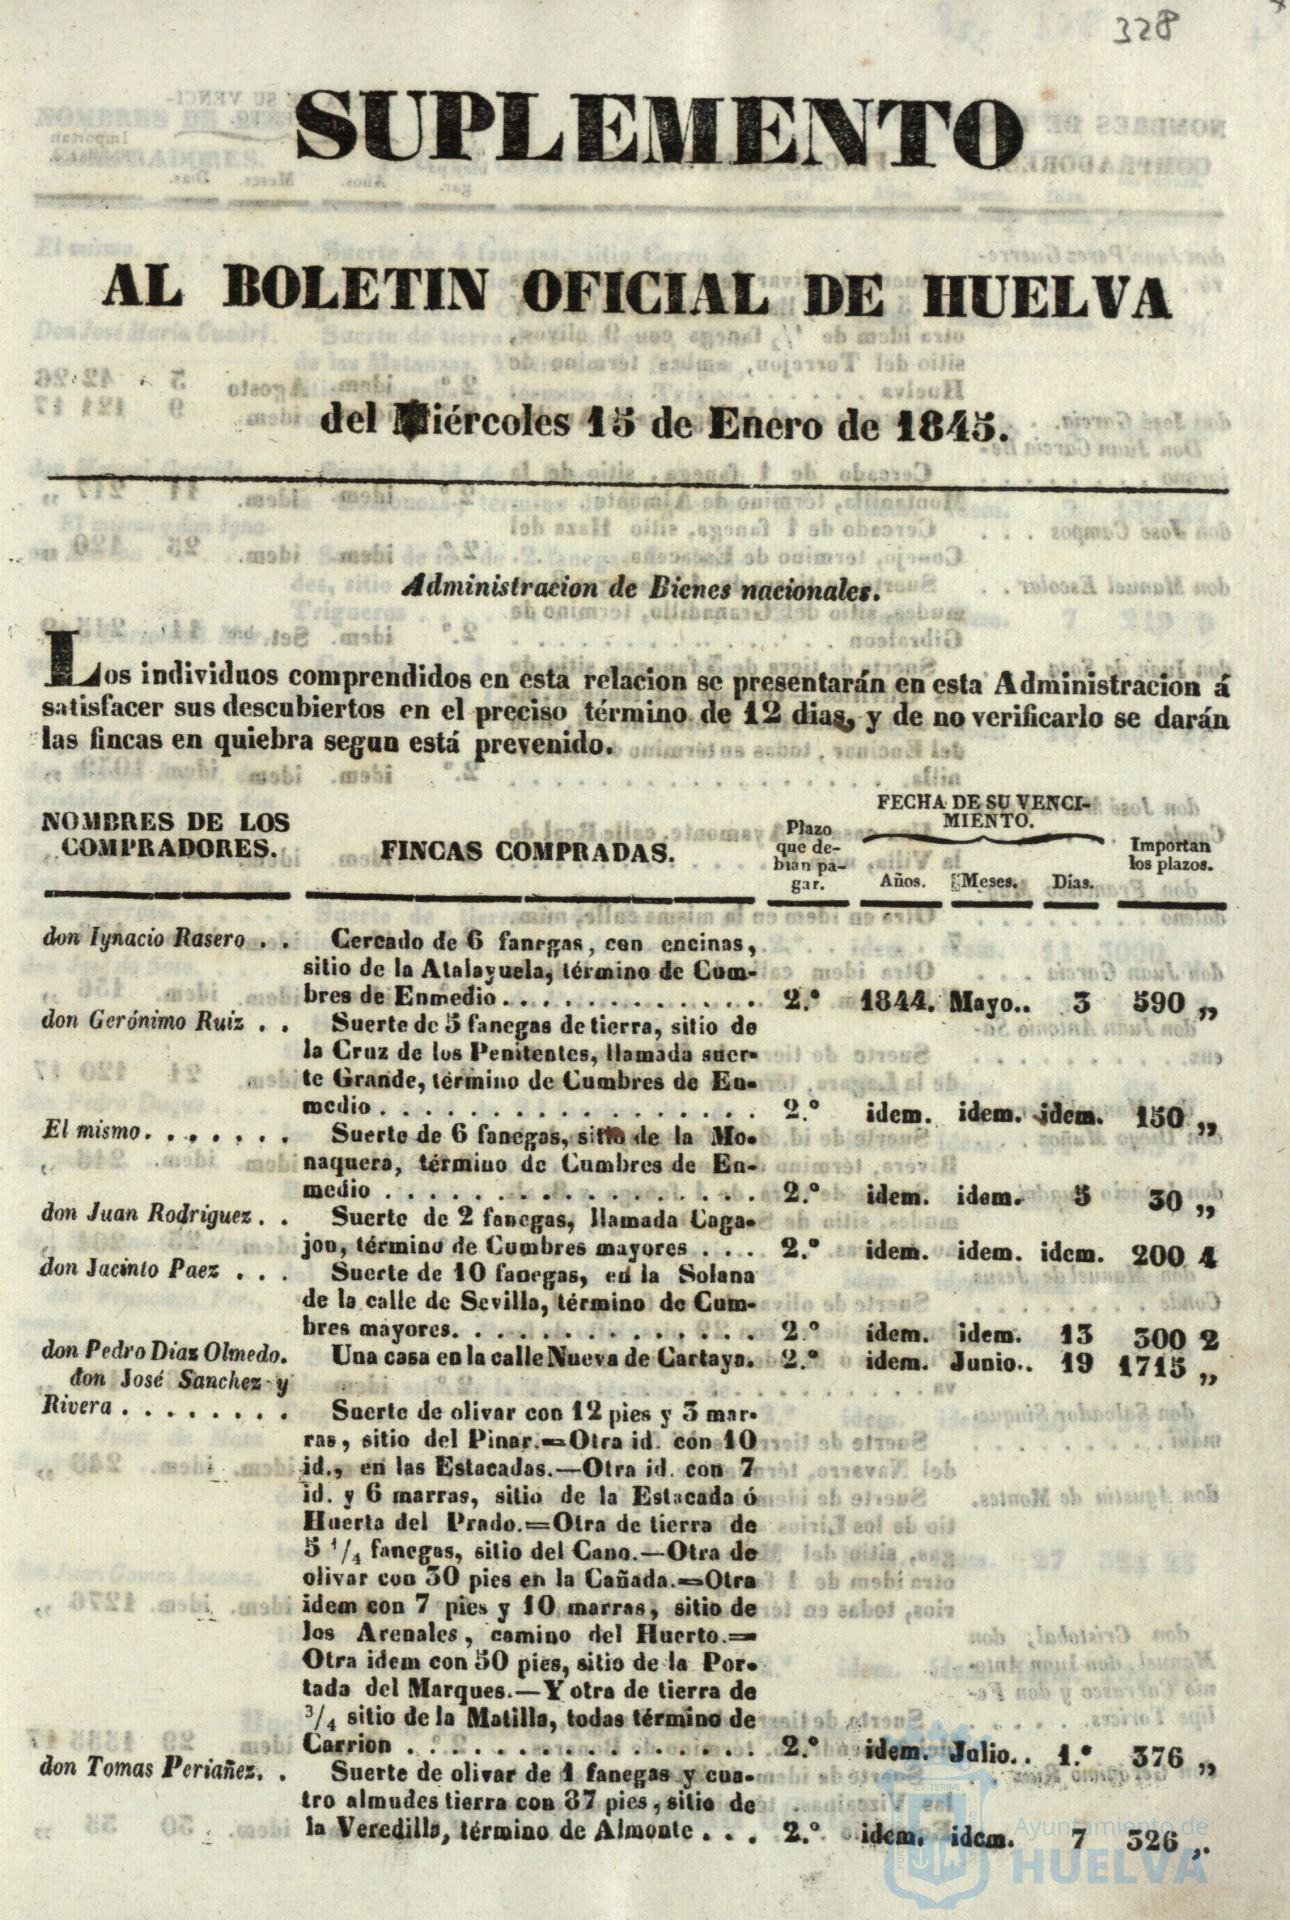 328
SUPLEMENTO
AL BOLETIN OFICIAL DE HUELVA
del Miércoles 15 de Enero de 1845.
Administracion de Bienes nacionales.
Los individuos comprendidos en esta relacion se presentarán en esta Administracion á
satisfacer sus descubiertos en el preciso término de 12 dias, y de no verificarlo se darán
las fincas en quiebra segun está prevenido.
NOMBRES DE LOS COMPRADORES. FINCAS COMPRADAS. Plazo que debian pagar. FECHA DE SU VENCIMIENTO. Años. Meses. Dias. Importan los plazos.
don Ignacio Rasero . . Cercado de 6 fanegas, con encinas,
sitio de la Atalayuela, término de Cum-
bres de Enmedio . . . . . . . . . . . . 2.º 1844. Mayo.. 3 590 „
don Gerónimo Ruiz . . Suerte de 5 fanegas de tierra, sitio de
la Cruz de los Penitentes, llamada suer-
te Grande, término de Cumbres de En-
medio . . . . . . . . . . . . . . . . . 2.º idem. idem. idem. 150 „
El mismo. . . . . . . Suerte de 6 fanegas, sitio de la Mo-
naquera, término de Cumbres de En-
medio . . . . . . . . . . . . . . . . . 2.º idem. idem. 5 30 „
don Juan Rodriguez. . Suerte de 2 fanegas, llamada Caga-
jon, término de Cumbres mayores . . . 2.º idem. idem. idem. 200 4
don Jacinto Paez . . . Suerte de 10 fanegas, en la Solana
de la calle de Sevilla, término de Cum-
bres mayores. . . . . . . . . . . . . . 2.º idem. idem. 13 300 2
don Pedro Diaz Olmedo. Una casa en la calle Nueva de Cartaya. 2.º idem. Junio.. 19 1715 „
don José Sanchez y
Rivera . . . . . . . . Suerte de olivar con 12 pies y 3 mar-
ras, sitio del Pinar.=Otra id. con 10
id., en las Estacadas.—Otra id. con 7
id. y 6 marras, sitio de la Estacada ó
Huerta del Prado.=Otra de tierra de
5 1/4 fanegas, sitio del Cano.—Otra de
olivar con 30 pies en la Cañada.=Otra
idem con 7 pies y 10 marras, sitio de
los Arenales, camino del Huerto.=
Otra idem con 50 pies, sitio de la Por-
tada del Marques.—Y otra de tierra de
3/4 sitio de la Matilla, todas término de
Carrion . . . . . . . . . . . . . . . . 2.º idem. Julio.. 1.º 376 „
don Tomas Periañez. . Suerte de olivar de 1 fanegas y cua-
tro almudes tierra con 37 pies, sitio de
la Veredilla, término de Almonte . . . 2.º idem. idem. 7 326 „.
Ayuntamiento de
HUELVA